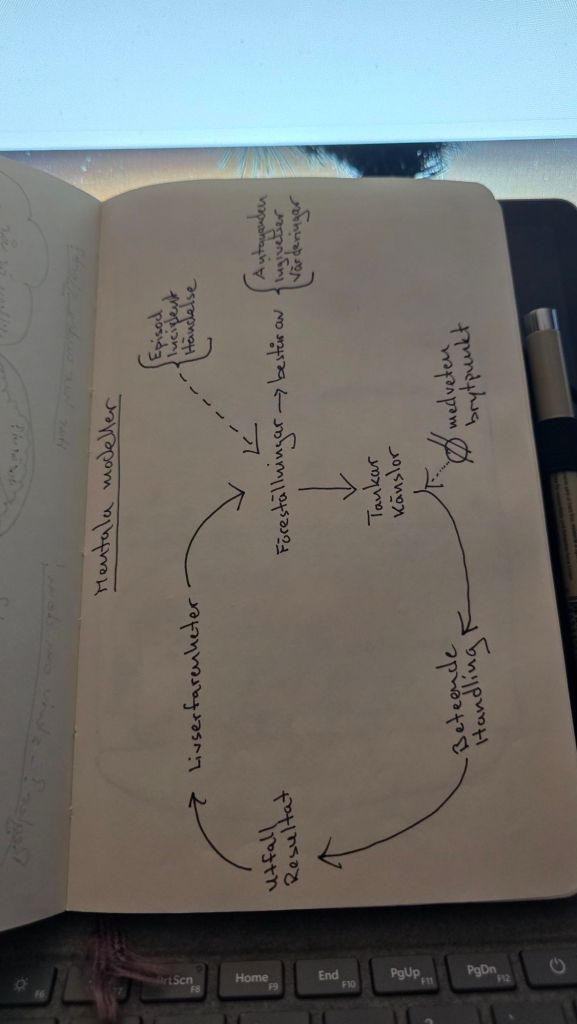 Mentala modeller
Episod
Incident
Händelse
Livserfarenheter
Föreställningar → består av
Antaganden
Ingivelser
Värderingar
Tankar
Känslor
medveten
brytpunkt
Beteende
Handling
Utfall
Resultat
F6
F7
PrtScn
F8
Home
F9
End
F10
PgUp
F11
PgDn
F12